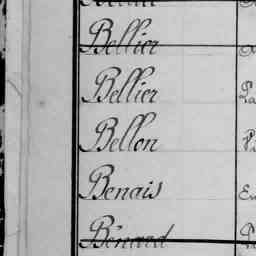 Bellier
Bellier
Bellon
Benais
Bénard